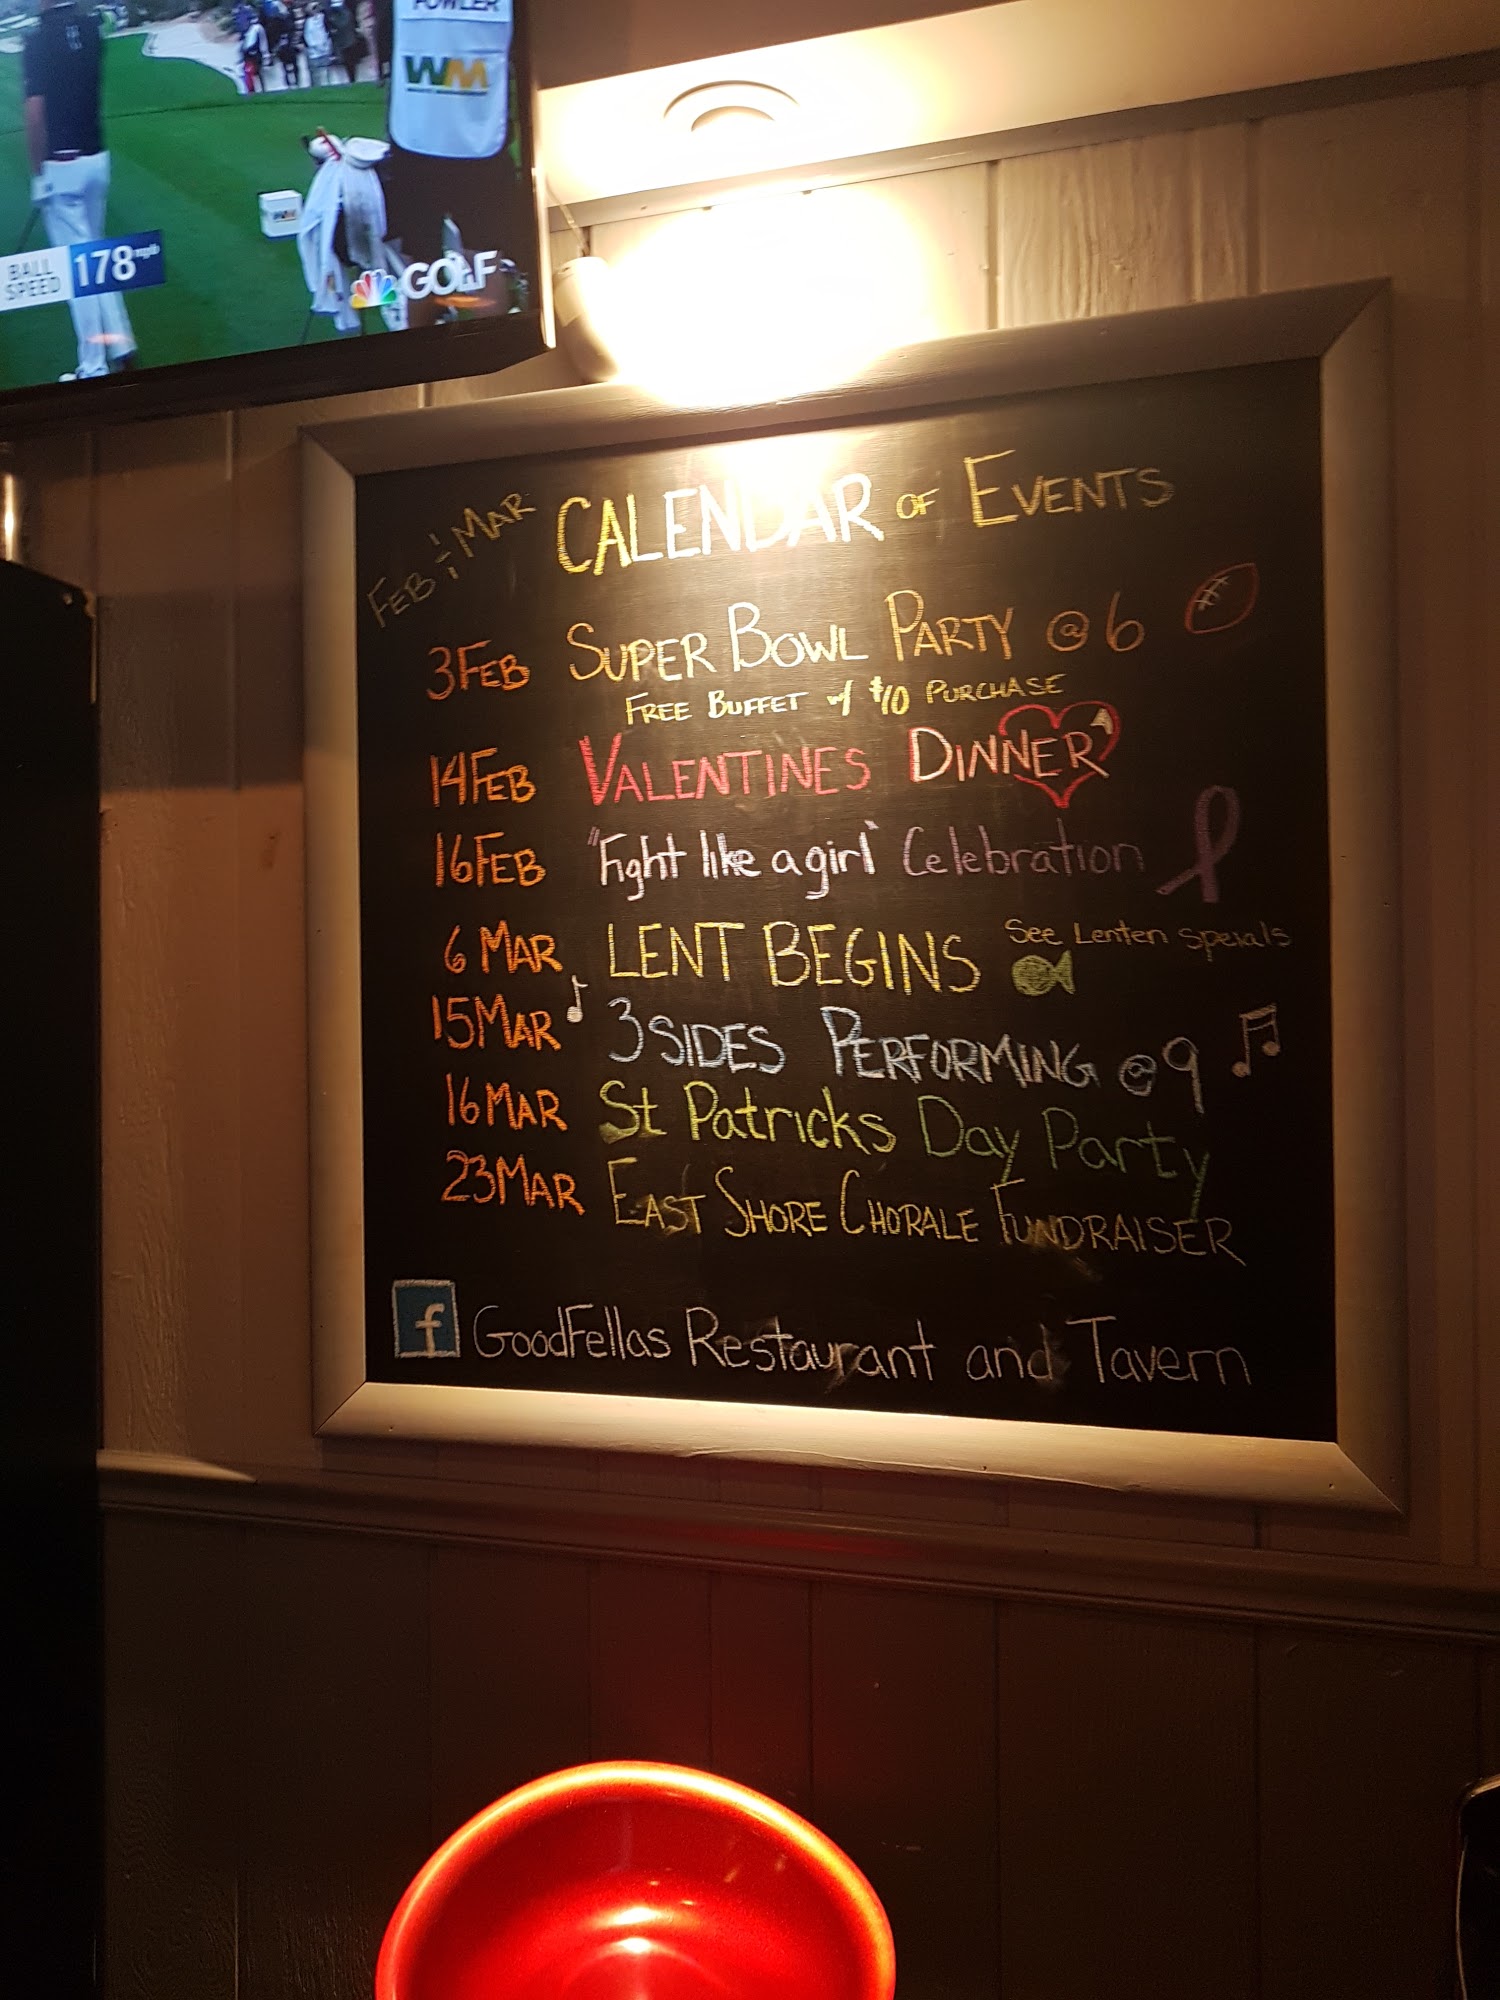 FOWLER
WM
WM
BALL SPEED 178 mph
GOLF
FEB & MAR
CALENDAR OF EVENTS
3 FEB SUPER BOWL PARTY @ 6
FREE BUFFET w/ $10 PURCHASE
14 FEB VALENTINES DINNER
16 FEB "Fight like a girl" Celebration
6 MAR LENT BEGINS See Lenten Specials
15 MAR 3 SIDES PERFORMING @ 9
16 MAR St Patricks Day Party
23 MAR EAST SHORE CHORALE FUNDRAISER
f GoodFellas Restaurant and Tavern